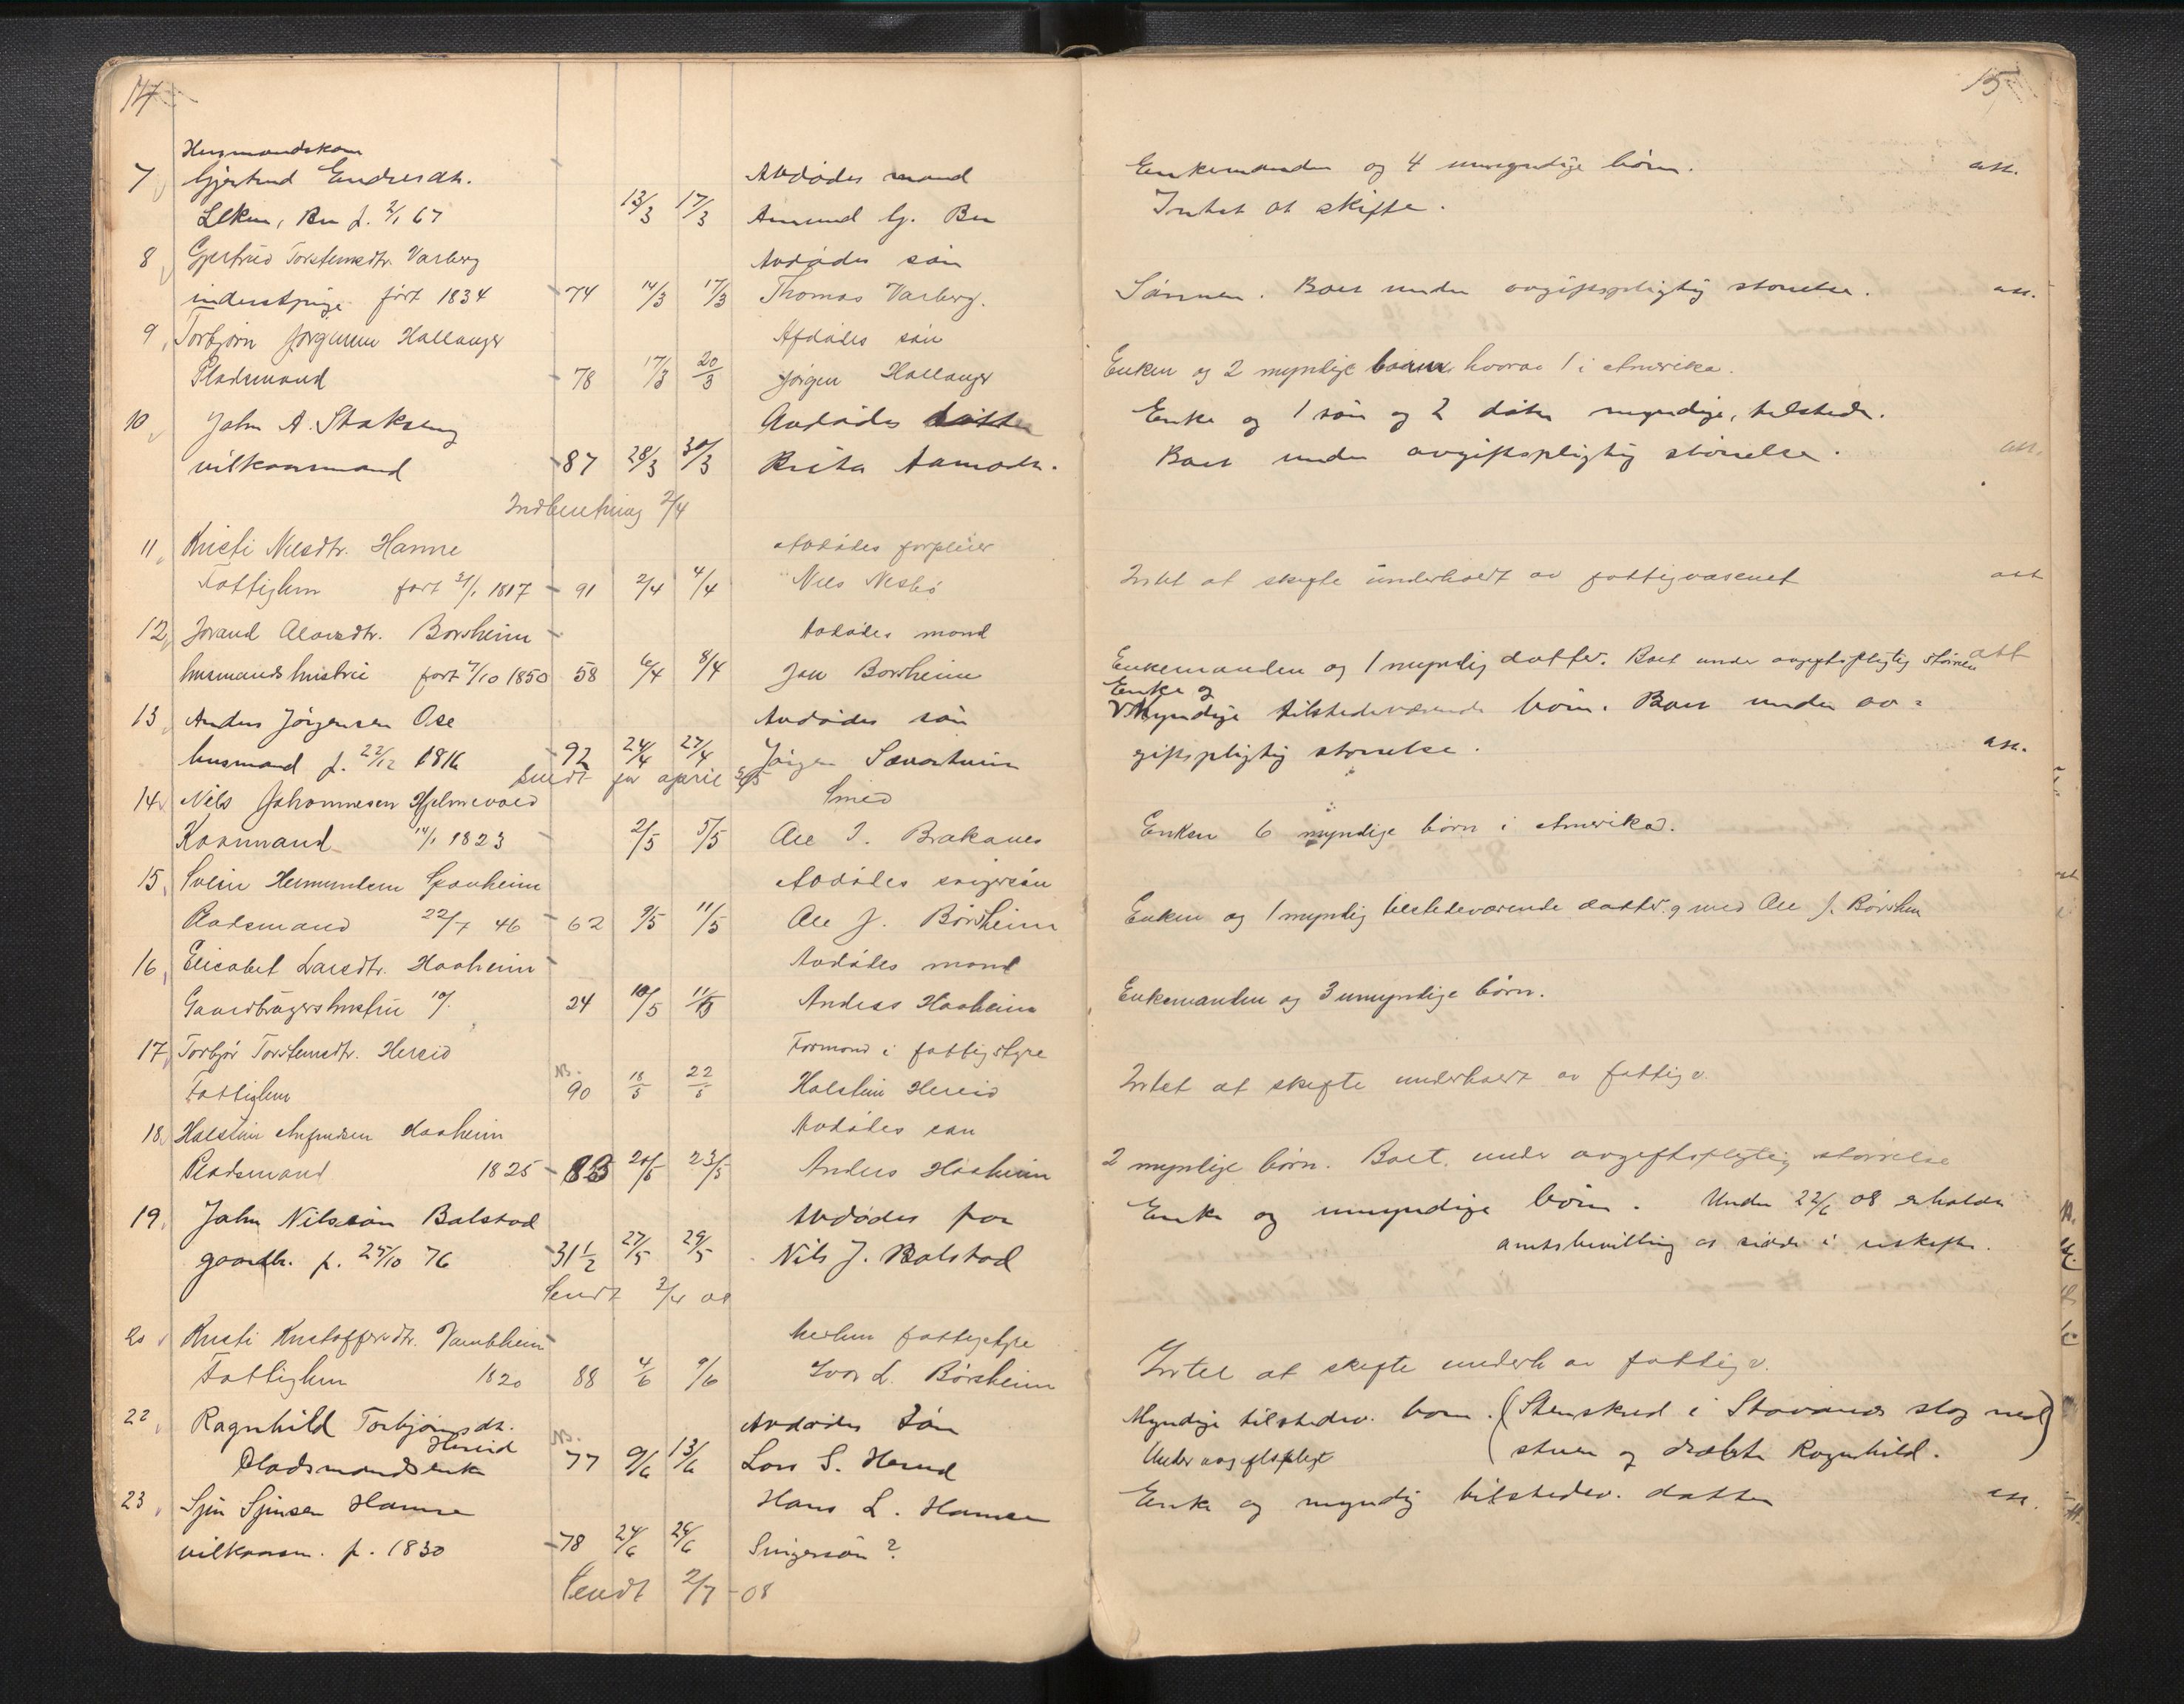 14
Husmandskone
7 Gjertrud Endresdtr. Avdødes mand
Leken, Bu f. 2/1 67 13/3 17/3 Amund G. Bu
8 Gjertrud Torsteinsdtr. Varberg Avdødes søn
inderstpige født 1834 74 14/3 17/3 Thomas Varberg.
9 Torbjørn Jørgensen Hallanger Afdødes søn
Pladsmand 78 17/3 20/3 Jørgen Hallanger
10 John A. Stokseng Avdødes datter
vilkaarsmand 87 28/3 30/3 Brita
Indberetning 2/4
11 Kristi Nilsdtr. Hamre Avdødes forpleier
Fattiglem født 31/1 1817 91 2/4 4/4 Nils Nesbø
12 Jorand Olavsdtr. Borsheim Avdødes mand
husmandshustru født 7/10 1850 58 6/4 8/4 Jon Borsheim
13 Anders Jørgensen Ose Avdødes søn
husmand f. 22/12 1816 92 24/4 27/4 Jørgen
Sendt for april 5/5
14 Nils Johannesen Hjelmevold Smed
Kaarmand 14/1 1823 2/5 5/5 Ole I. Brakanes
15 Svein Hermundsen Sponheim Avdødes svigersøn
Pladsmand 22/7 46 62 9/5 11/5 Ole J. Børsheim
16 Elisabet Larsdtr. Haaheim Avdødes mand
Gaardbrugershustru 24 10/5 11/5 Anders Haaheim
17 Torbjør Torsteinsdtr. Hereid Formand i fattigstyre
Fattiglem NB. 90 18/5 22/5 Halstein Hereid
18 Halstein Amundsen Haaheim Avdødes søn
Pladsmand 1825 83 20/5 23/5 Anders Haaheim
19 John Nilssøn Bolstad Avdødes far
gaardbr. f. 25/10 76 31 1/2 27/5 29/5 Nils J. Bolstad
Sendt
20 Kristi Kristoffersdtr. medlem fattigstyre
Fattiglem 1820 88 4/6 9/6 Ivar L. Børsheim
22 Ragnhild Torbjørnsdtr. Avdødes søn
Hereid
Pladsmandsenke NB. 77 9/6 13/6 Lars S. Hereid
23 Sjur Sjursen Hamre Hans L. Hamre
vilkaarsm. f. 1830 78 24/6 26/6 Svigersøn?
Sendt 2/7 - 08
15
Enkemanden og 4 umyndige børn. att.
Intet at skifte.
Sønnen. Boet under avgiftspligtig størrelse. att.
Enken og 2 myndige børn hvorav 1 i Amerika.
Enke og 1 søn og 2 døtre myndige, tilstede.
Boet under avgiftspligtig størrelse. att.
Intet at skifte underholdt av fattigvæsenet att
Enkemanden og 1 myndig datter. Boet under avgiftspligtig størrelse att
Enke og
myndige tilstedeværende børn. Boet under av=
giftspligtig størrelse. att.
Enken 6 myndige børn i Amerika.
Enken og 1 myndig tilstedeværende datter g. med Ole J. Børsheim
Enkemanden og 3 umyndige børn.
Intet at skifte underholdt av fattigv.
2 myndige børn. Boet under avgiftspligtig størrelse
Enke og umyndige børn. Under 22/6 08 erholdt
amtsbevilling at sidde i uskifte.
Intet at skifte underh. av fattigv.
Myndige tilstedev. børn. (Stenskred i slog ned
Under avgiftspligt stuen og dræbte Ragnhild.)
Enke og myndig tilstedev. datter att.